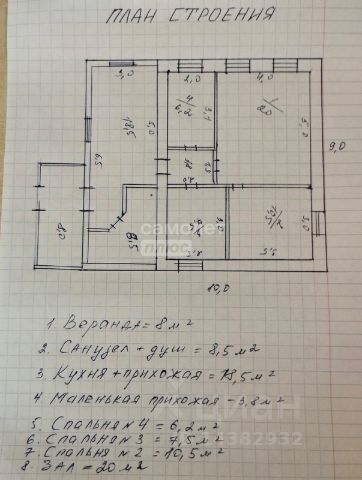 ПЛАН СТРОЕНИЯ
3,0
2,0
4,0
18,5
5,0
6,5
4
6,2
3,1
1
20
5,0
9,0
8,0
8,5
3,5
10,0
самолет
плюс
1. ВЕРАНДА = 8 м²
2. САНУЗЕЛ + ДУШ = 8,5 м²
3. КУХНЯ + ПРИХОЖАЯ = 18,5 м²
4. МАЛЕНЬКАЯ ПРИХОЖАЯ - 3,8 м²
5. СПАЛЬНЯ N 4 = 6,2 м²
6. СПАЛЬНЯ N 3 = 7,5 м²
7. СПАЛЬНЯ N 2 = 10,5 м²
8. ЗАЛ = 20 м²
ЦИАН